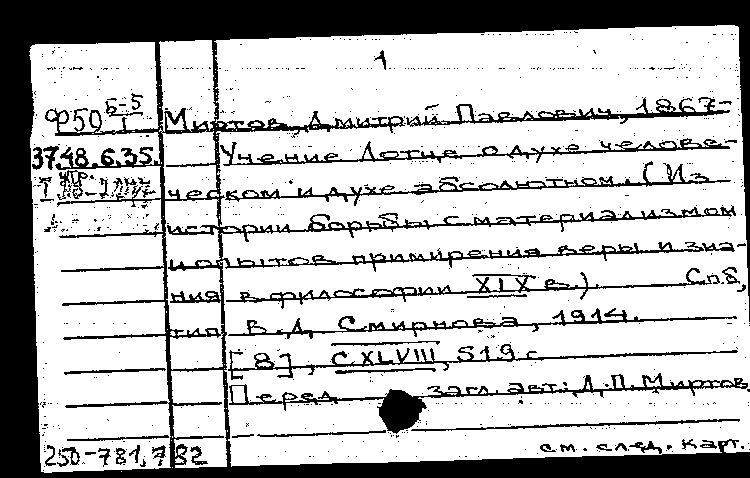 1
Ф50 Б-5/I Миртов, Дмитрий Павлович, 1867-
37.48.6.35. Учение Лотце о духе челове-
ческом и духе абсолютном. (Из
истории борьбы с материализмом
и опытов примирения веры и зна-
ния в философии XIX в.) Спб,
тип. В.Д. Смирнова, 1914.
[8], CXLVIII, 519 с.
Перед загл. авт.: Д.П. Миртов
250-781,782 см. след. карт.